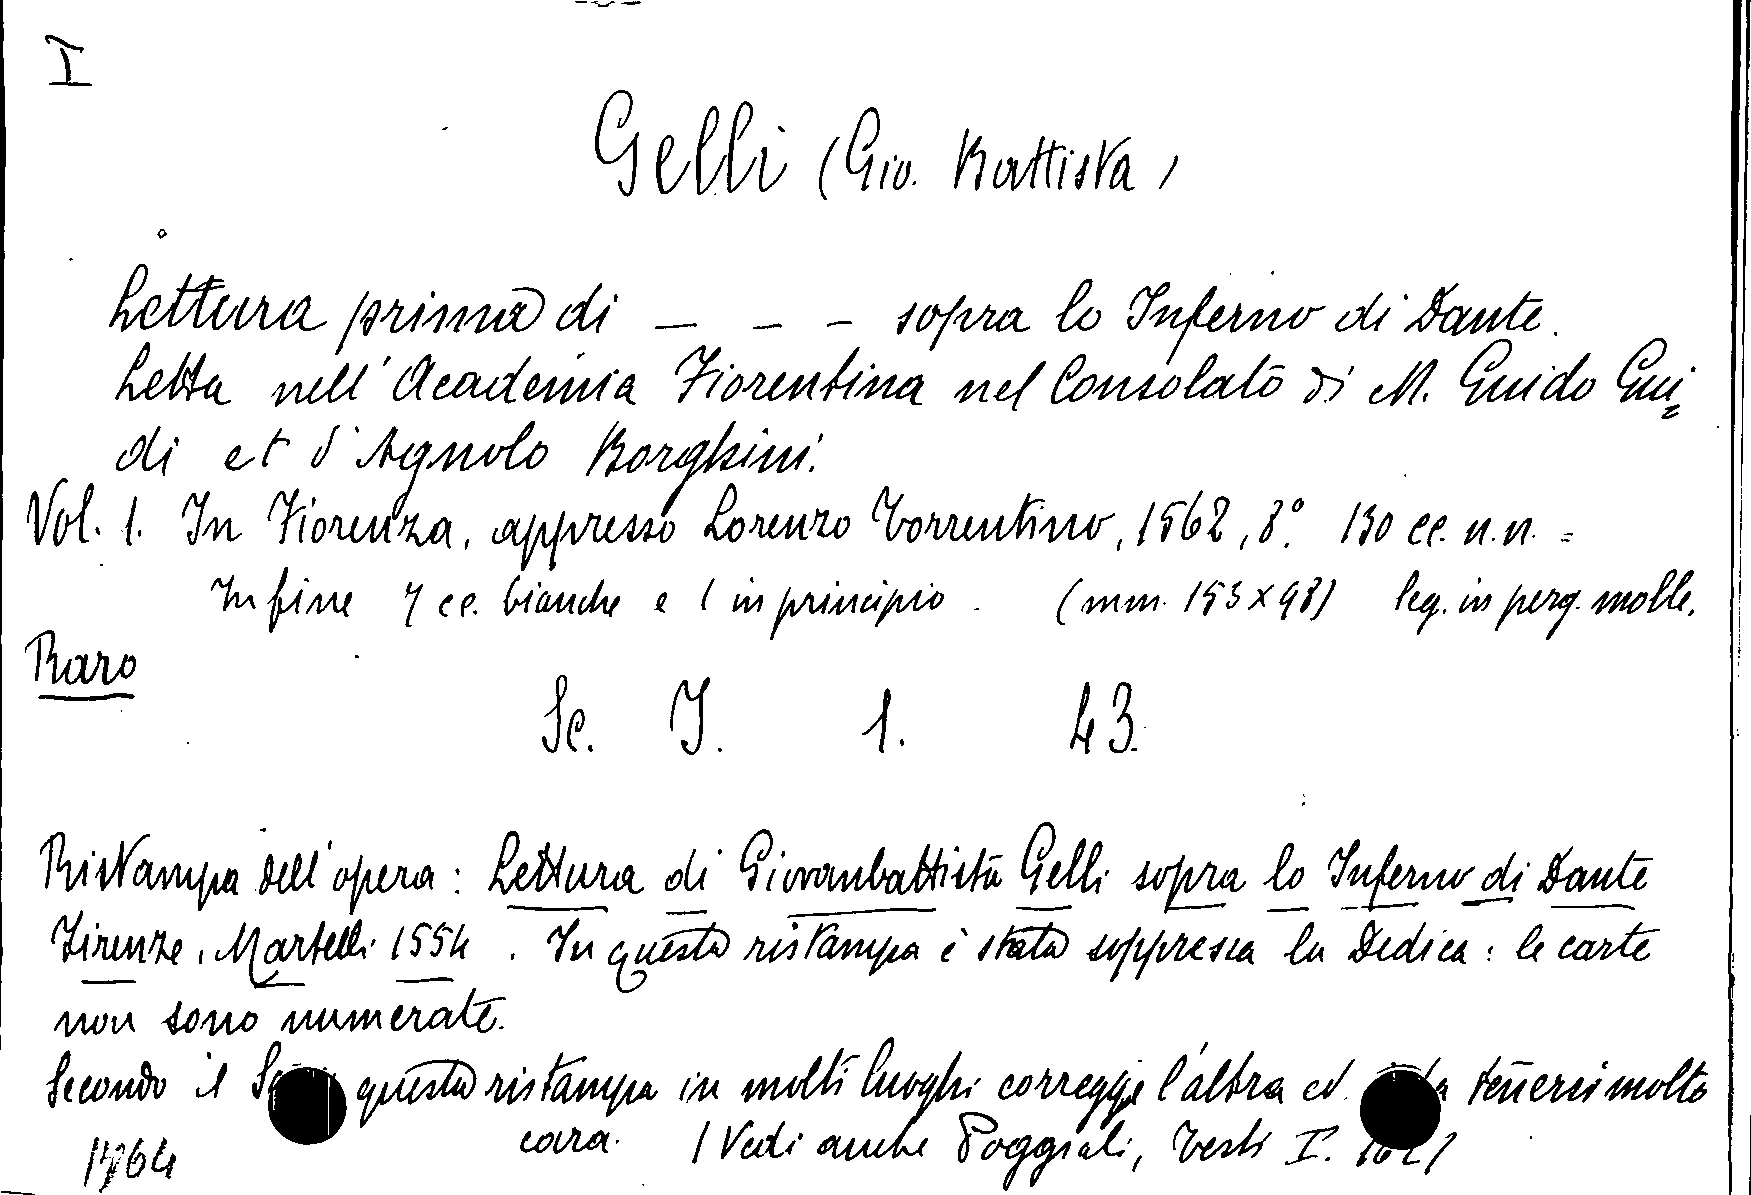 I
Gelli (Gio. Battista)
Lettura prima di _ _ _ sopra lo Inferno di Dante.
Letta nell'Academia Fiorentina nel Consolato di M. Guido Gui=
di et d'Agnolo Borghini.
Vol. 1. In Fiorenza, appresso Lorenzo Torrentino, 1562, 8.° 130 cc. n.n. =
In fine 7 cc. bianche e 1 in principio. (mm. 153 x 98) leg. in perg. molle.
Raro
Sc. I. 1. 43.
Ristampa dell'opera: Lettura di Giovanbattista Gelli sopra lo Inferno di Dante
Firenze, Martelli 1554. In questa ristampa è stata soppressa la Dedica: le carte
non sono numerate.
Secondo il questa ristampa in molti luoghi corregge l'altra ed tenersi molto
cara. (Vedi anche Poggiali, Testi I.
1764